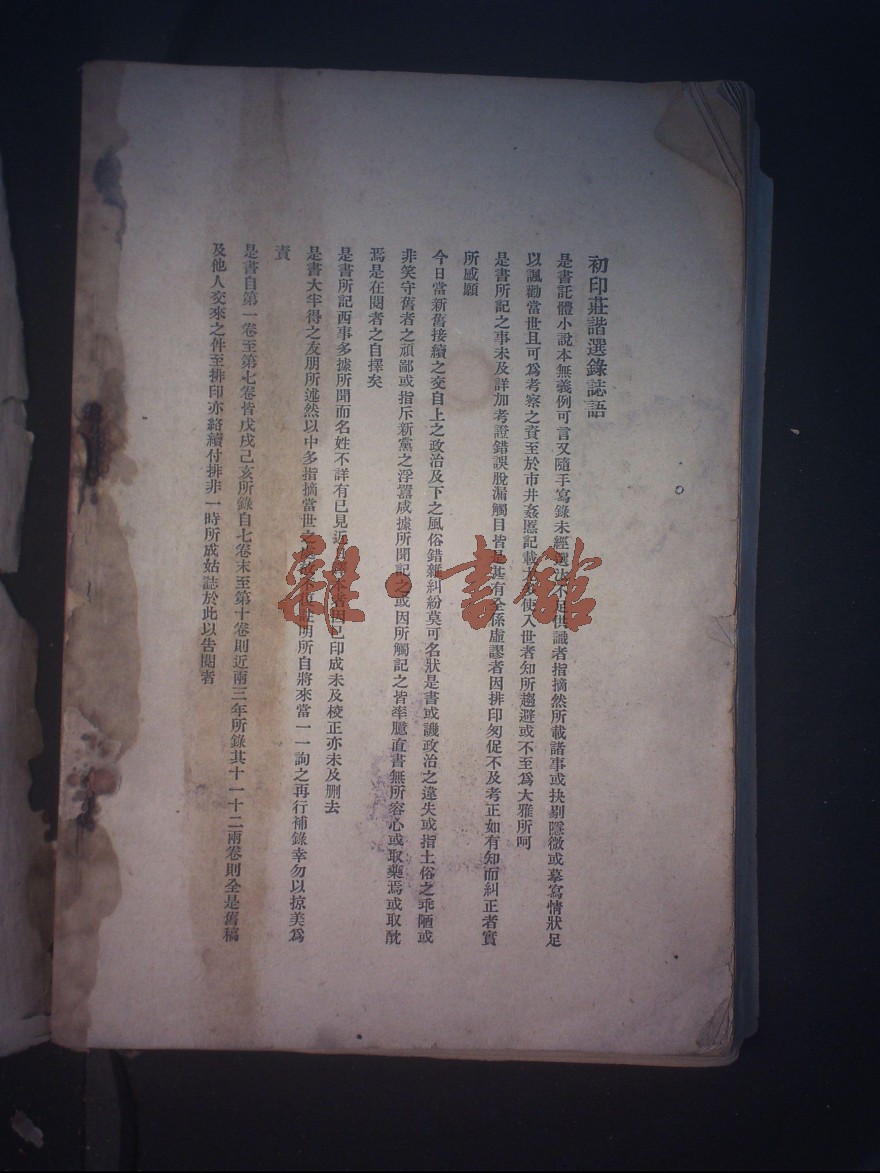 初印莊諧選錄誌語
是書託體小說本無義例可言又隨手寫錄未經選汰不足供識者指摘然所載諸事或抉剔隱微或摹寫情狀足
以諷勸當世且可爲考察之資至於市井姦慝記載尤使入世者知所趨避或不至爲大雅所呵
是書所記之事未及詳加考證錯誤脫漏觸目皆是甚有全係虛謬者因排印匆促不及考正如有知而糾正者實
所感願
今日當新舊接續之交自上之政治及下之風俗錯雜糾紛莫可名狀是書或譏政治之違失或指土俗之乖陋或
非笑守舊者之頑鄙或指斥新黨之浮囂咸據所聞記之或因所觸記之皆率臆直書無所容心或取藥焉或取酖
焉是在閱者之自擇矣
是書所記西事多據所聞而名姓不詳有已見近日本者因已印成未及校正亦未及刪去
是書大半得之友朋所述然以中多指摘當世之註明所自將來當一一詢之再行補錄幸勿以掠美爲
責
是書自第一卷至第七卷皆戊戌己亥所錄自七卷末至第十卷則近兩三年所錄其十一十二兩卷則全是舊稿
及他人交來之件至排印亦絡續付排非一時所成姑誌於此以告閱者
雜·書館